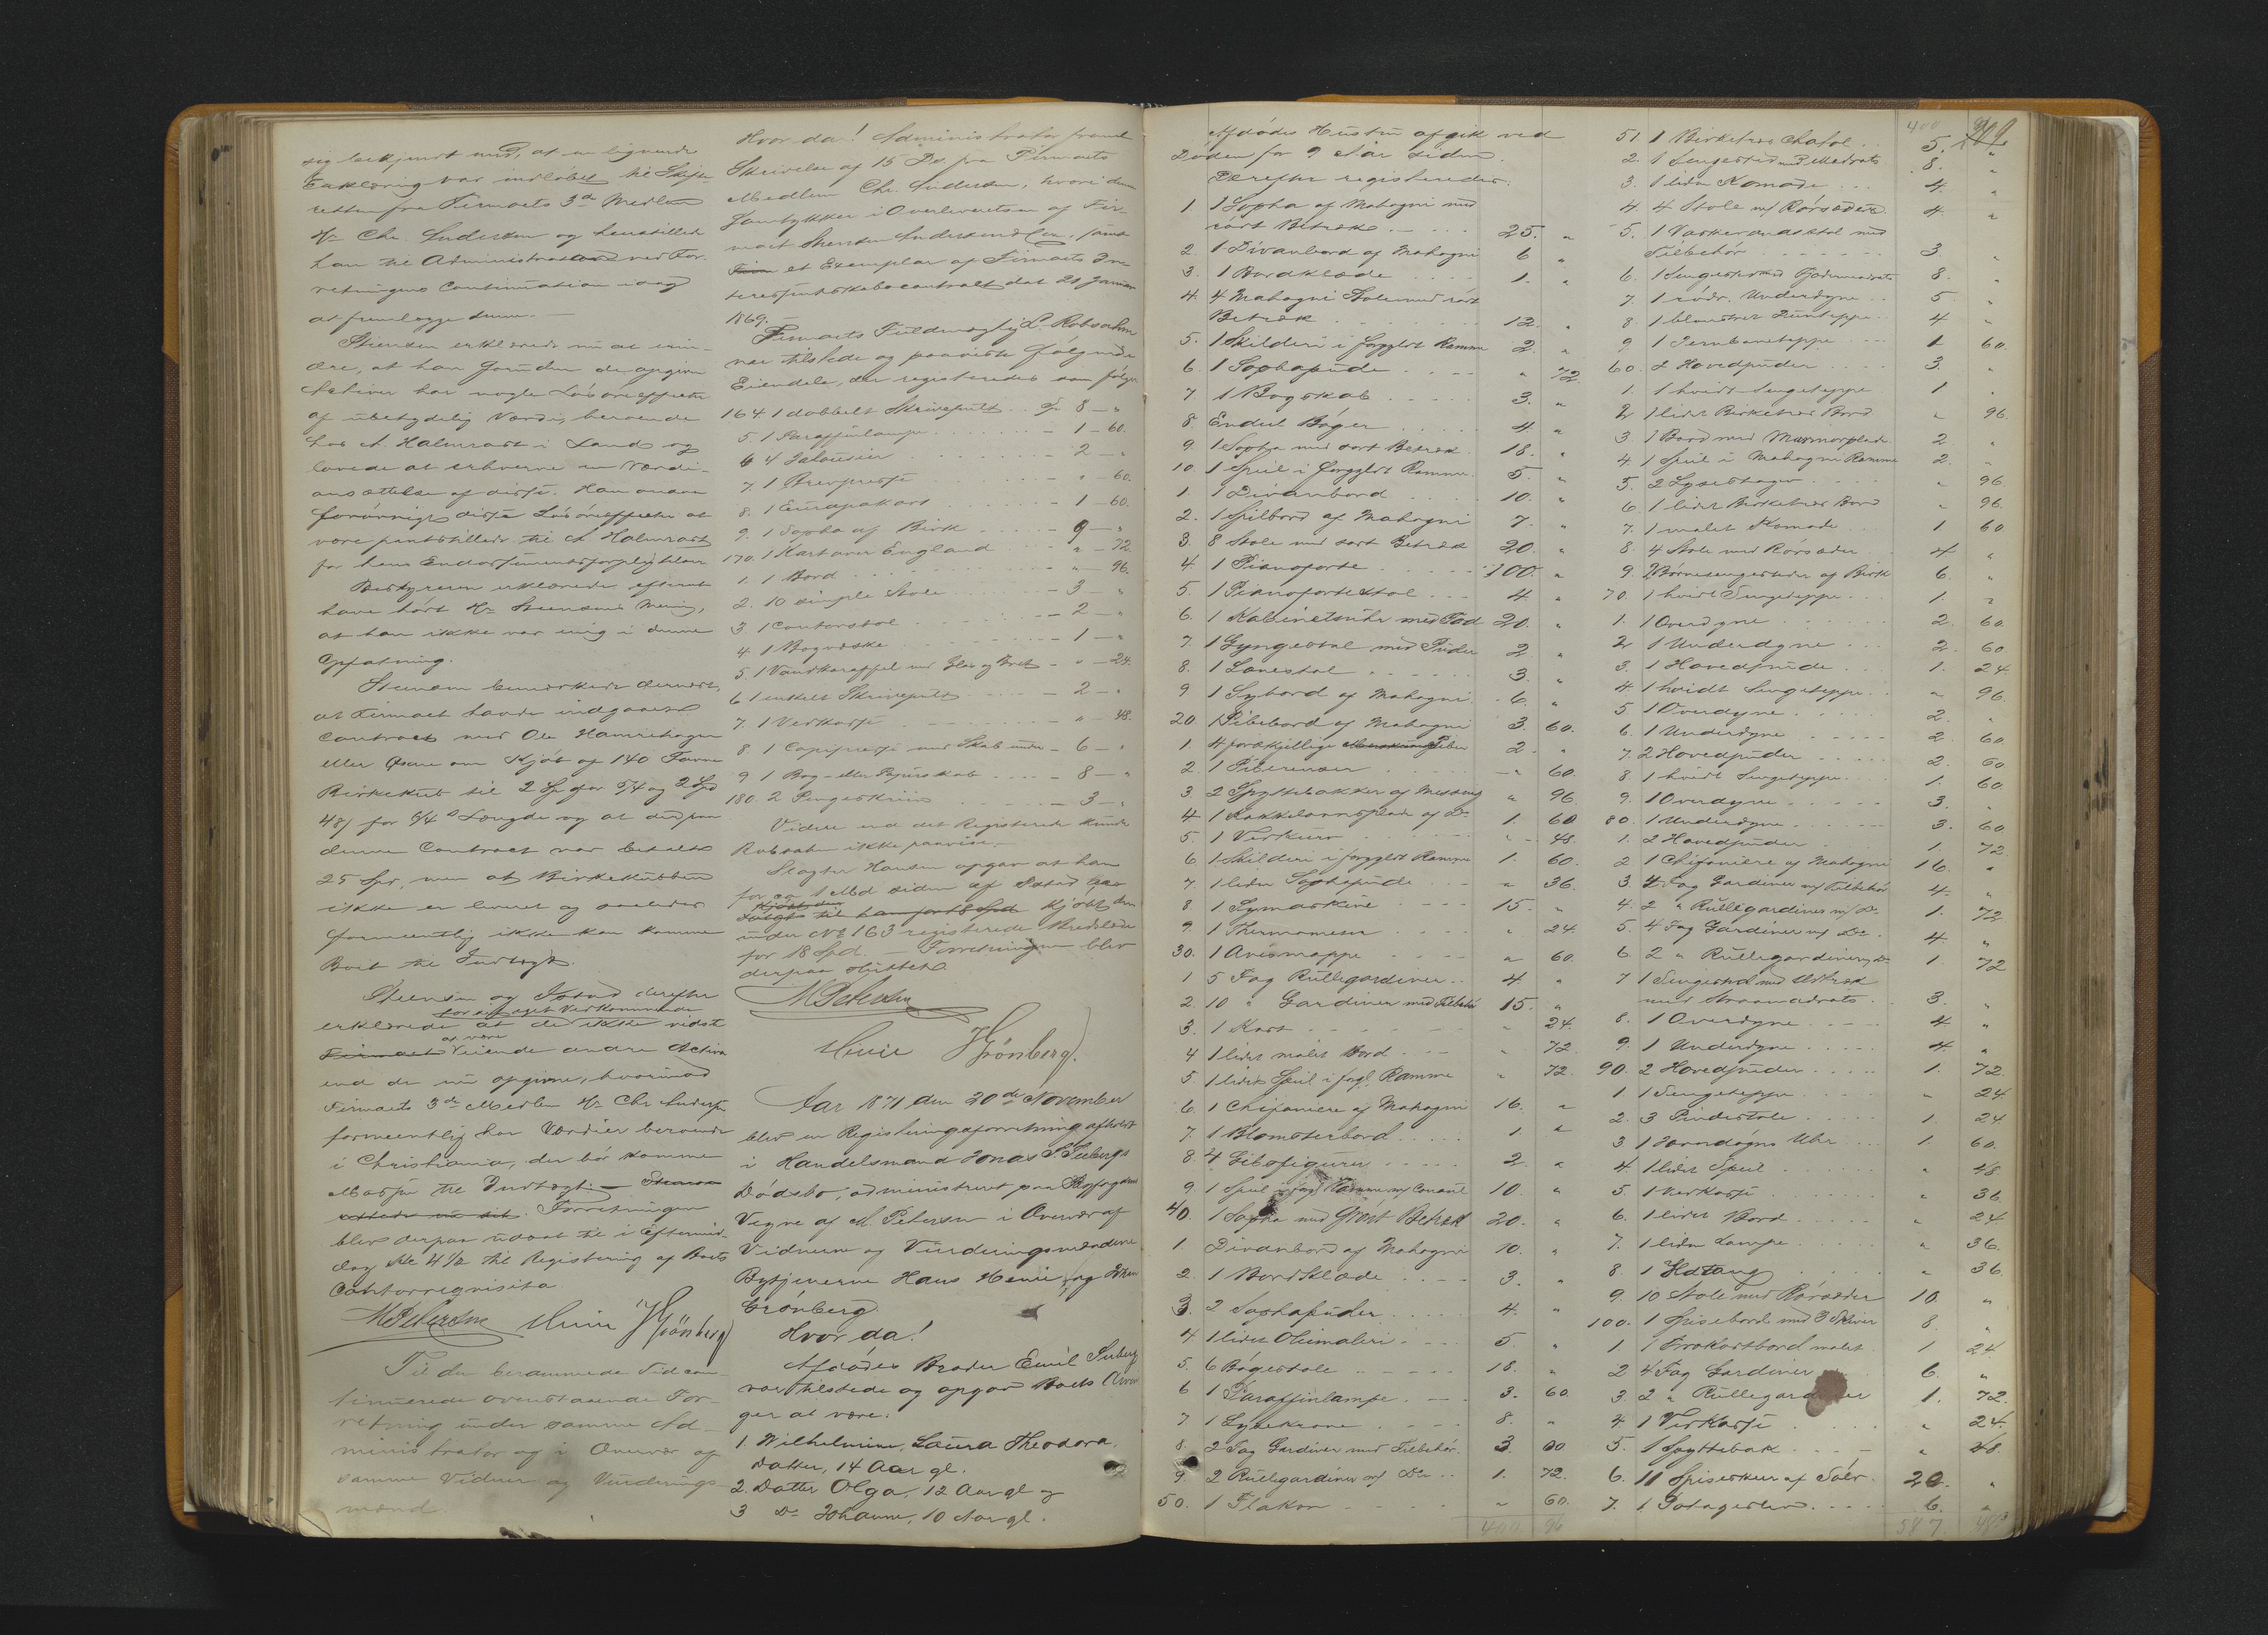 sig bekjendt med, at en lignende
Erklæring var indløbet til Skifte-
retten fra Firmaets 3de Medlem
Hr Chr. Andersen og henstillede
han til Administrator ved For-
retningens Continuation idag
at fremlægge denne.
Steensen erklærede nu at erin-
dre, at han foruden de opgivne
Activer har nogle Løsøreeffecter
af ubetydelig Værdi, beroende
hos A. Halmrast i Land og
lovede at erhverve en Værdi-
ansættelse af disse. Han ansaa
forøvrigt disse Løsøreeffecter at
være pantstillede til A. Halmrast
for hans Endossementsforpligtelser
Bestyreren erklærede efterat
have hørt Hr Steensens Mening,
at han ikke var enig i denne
Opfatning.
Steensen bemærkede dernæst,
at Firmaet havde indgaaet
Contract med Ole Hamrehagen
eller om Kjøb af 140 Favne
Birkekub til 2 Sp for 5/4 og 2 Spd
48 s for 6/4 Længde og at derpaa
denne Contract var betalt
25 Spd, men at Birkekubben
ikke er leveret og saaledes
formeentlig ikke kan komme
Boet til Indtægt.
Steensen og derefter
for sit eget Vedkommende
erklærede at de ikke vidste
at være
Firmaet Eiende andre Activa
end de nu opgivne, hvorimod
Firmaets 3de Medlem Hr Chr Anders
formeentlig har Værdier beroende
i Christiania, der bør komme
Massen til Indtægt. Forretningen
blev derpaa udsat til i Eftermid-
dag Kl 4 1/2 til Registrering af Boets
Contorreqvisita
M Petersen Henie JGrönberg
Til den berammede Tid con-
tinuerede ovenstaaende For-
retning under samme Ad-
ministrator og i Overvær af
samme Vidner og Vurderings-
mænd
Hvor da! Administrator fremlagde
Skrivelse af 15 Ds. fra Firmaets
Medlem Chr. Andersen, hvori denne
Samtykker i Overleverelsen af Fir-
maet Steensen Andersen & Co, samt
et Exemplar af Firmaets In-
teressentskabscontract dat 21 Januar
1869.
Firmaets Fuldmægtig L. Robsahm
var tilstede og paaviste følgende
Eiendele, der registreredes som følger
164 1 dobbelt Skrivepult 8 - "
5. 1 Paraffinlampe - 1 - 60.
6 4 Jalousier - 2 - "
7. 1 Brevpresse - " - 60.
8. 1 Europakart - 1 - 60.
9. 1 Sopha af Birk - 9 - "
170. 1 Kart over England " - 72
1. 1 Bord - " - 96.
2. 10 simple Stole - 3 - "
3 1 Contorstol - 2 - "
4. 1 Bogreske - 1 - "
5 1 Vandkaraffel med Glas og Bret - " - 24.
6 1 enkelt Skrivepult - 2 - "
7. 1 Vedkasse - " - 48.
8 1 Copipresse med Skab under - 6 - "
9 1 Bog- eller Papirskab - 8 - "
180. 2 Pengeskrin - 3 - "
Videre end det Registrerede kunde
Robsahm ikke paavise.
Slagter Hansen opgav at han
for ca 1 Md siden af
Kjøbt den
solgt til ham for 18 Spd kjøbt den
under No 163 registrerede Bredslæde
for 18 Spd. - Forretningen blev
derpaa sluttet.
M Petersen
Henie JGrönberg.
Aar 1871 den 20de November
blev en Registreringsforretning afholdt
i Handelsmand Jonas S. Seebergs
Dødsbo, administreret paa Byfogdens
Vegne af M. Petersen i Overvær af
Vidnerne og Vurderingsmændene
Bytjenerne Hans Henie og Johan
Grönberg.
Hvor da!
Afdødes Broder Emil Seeberg
var tilstede og opgav Boets Arvin-
ger at være:
1. Wilhelmine, Laura Theodora,
Datter, 14 Aar gl.
2. Datter Olga, 12 Aar gl og
3 Do Johanne, 10 Aar gl.
Afdødes Hustru afgik ved
Døden for 9 Aar siden.
Derefter registreredes:
1. 1 Sopha af Mahogni med
rødt Betræk 25. "
2. 1 Divanbord af Mahogni 6 "
3. 1 Bordklæde 1. "
4. 4 Mahogni Stole med rødt
Betræk 12. "
5. 1 Skilderi i forgyldt Ramme 2. "
6. 1 Sophapude " 72.
7. 1 Bogskab 3. "
8 Endeel Bøger 4. "
9. 1 Sopha med sort Betræk 18. "
10. 1 Speil i forgyldt Ramme 5. "
1. 1 Divanbord 10. "
2. 1 Spilbord af Mahogni 7. "
3. 8 Stole med sort Betræk 20. "
4. 1 Pianoforte 100. "
5. 1 Pianofortestol 4. "
6. 1 Kabinetsuhr med Fod 20. "
7. 1 Gyngestol med Puder 2 "
8. 1 Lænestol 3. "
9 1 Sybord af Mahogni 6. "
20. 1 Pibebord af Mahogni 3. 60.
1. 4 forskjellige Piber 2. "
2. 1 Piberenser " 60.
3. 2 Spyttebakker af Messing " 96.
4. 1 Kakkelovnsplade af Do 1. 60
5. 1 Vedkurv " 48.
6. 1 Skilderi i forgyldt Ramme 1. 60.
7. 1 liden Sophapude " 36.
8 1. Symaskine 15. "
9. 1 Thermometer " 24.
30. 1 Avismappe " 60.
1 5 Fag Rullegardiner 4 "
2. 10 " Gardiner med Tilbehør 15. "
3. 1 Kart " 24.
4 1 lidet malet Bord " 72.
5. 1 lidet Speil i forgl. Ramme " 72.
6. 1 Chifoniere af Mahogni 16. "
7. 1 Blomsterbord 1. "
8. 4 Gibsfigurer 2. "
9. 1 Speil i forgl Ramme m/ Consol 10. "
40. 1 Sopha med Grønt Betræk 20. "
1. Divanbord af Mahogni 10. "
2. 1 Bordklæde 3. "
3. 2 Sophapuder 4. "
4 1 lidet Oliemaleri 5. "
5. 6 Bøgestole 18. "
6 1 Paraffinlampe 3. 60
7. 1 Lysekrone 8. "
8. 2 Fag Gardiner med Tilbehør 3. 60
9. 2 Rullegardiner m/ Do 1. 72.
50. 1 Flakon " 60.
400. 96
400
51. 1 Birketræs Chatol 5. "
2. 1 Sengested med Madrats 8. "
3. 1 liden Komode 4. "
4. 4 Stole m/ Rørsæder 4. "
5. 1 Vaskevandsstol med
Tilbehør 3. "
6. 1 Sengested med Fjedermadrats 8. "
7. 1 rødr. Underdyne 5. "
8 1 blomstret Duunteppe 4 "
9 1 Jernbaneteppe 1 60.
60. 2 Hovedpuder 3. "
1. 1 hvidt Sengeteppe 1 "
2 1 lidet Birketræs Bord " 96.
3. 1 Bord med Marmorplade 2. "
4. 1 Speil i Mahogni Ramme 2. "
5. 2 Lysestager " 96.
6. 1 lidet Birketræs Bord " 96.
7. 1 malet Komode 1 60
8. 4 Stole med Rørsæder 4 "
9. 2 Børnesengesteder af Birk 6. "
70. 1 hvidt Sengeteppe 1. "
1. 1 Overdyne 2. 60
2 1 Underdyne 2. 60
3. 1 Hovedpude 1. 24
4. 1 hvidt Sengeteppe " 96.
5 1 Overdyne 2. "
6. 1 Underdyne 2. 60
7. 2 Hovedpuder 2. 60
8 1 hvidt Sengeteppe 1. 60
9. 1 Overdyne 3. "
80. 1 Underdyne 3. 60
1. 2 Hovedpuder 1. 72
2 1 Chifoniere af Mahogni 16. "
3. 4 Fag Gardiner m/ Tilbehør 4. "
4. 2 " Rullegardiner m/ Do 1. 72
5. 4 Fag Gardiner m/ Do 4 "
6. 2 " Rullegardiner m/ Do 1. 72
7 1 Sengested med Udtræk
med Straamadrats 3. "
8. 1 Overdyne 4 "
9. 1 Underdyne 4. "
90. 2 Hovedpuder 1. 72
1 1 Sengeteppe " 24
2. 3 Pindestole 1. 24
3 1 Uhr 1. 60.
4. 1 lidet Speil " 48
5. 1 Vedkasse " 36
6. 1 lidet Bord " 24
7. 1 liden Lampe " 36.
8. 1 Ildtang " 36.
9. 10 Stole med Rørsæder 10 "
100. 1 Spisebord med 3 Skiver 8. "
1 1 Frokostbord malet 1 24
2 4 Fag Gardiner 6. "
3. 2 " Rullegardiner 1. 72.
4. 1 Vedkasse " 24.
5. 1 Spyttebak " 48
6. 11 Spiseskeer af Sølv 20. "
7. 1 Potageslev 6. "
587 48